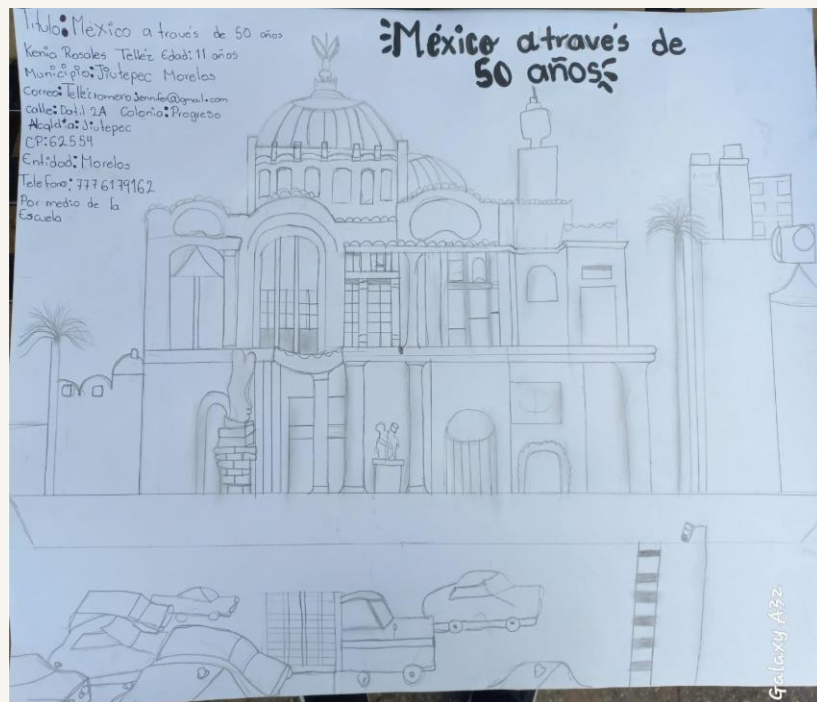 Titulo: México a través de 50 años
Kenia Rosales Telléz Edad: 11 años
Municipio: Jiutepec Morelos
Correo: Tellézromerojennifer@gmail.com
Calle: Datil 2A Colonia: Progreso
Alcaldia: Jiutepec
CP: 62554
Entidad: Morelos
Telefono: 7776179162
Por medio de la
Escuela
México a través de
50 años
Galaxy A32